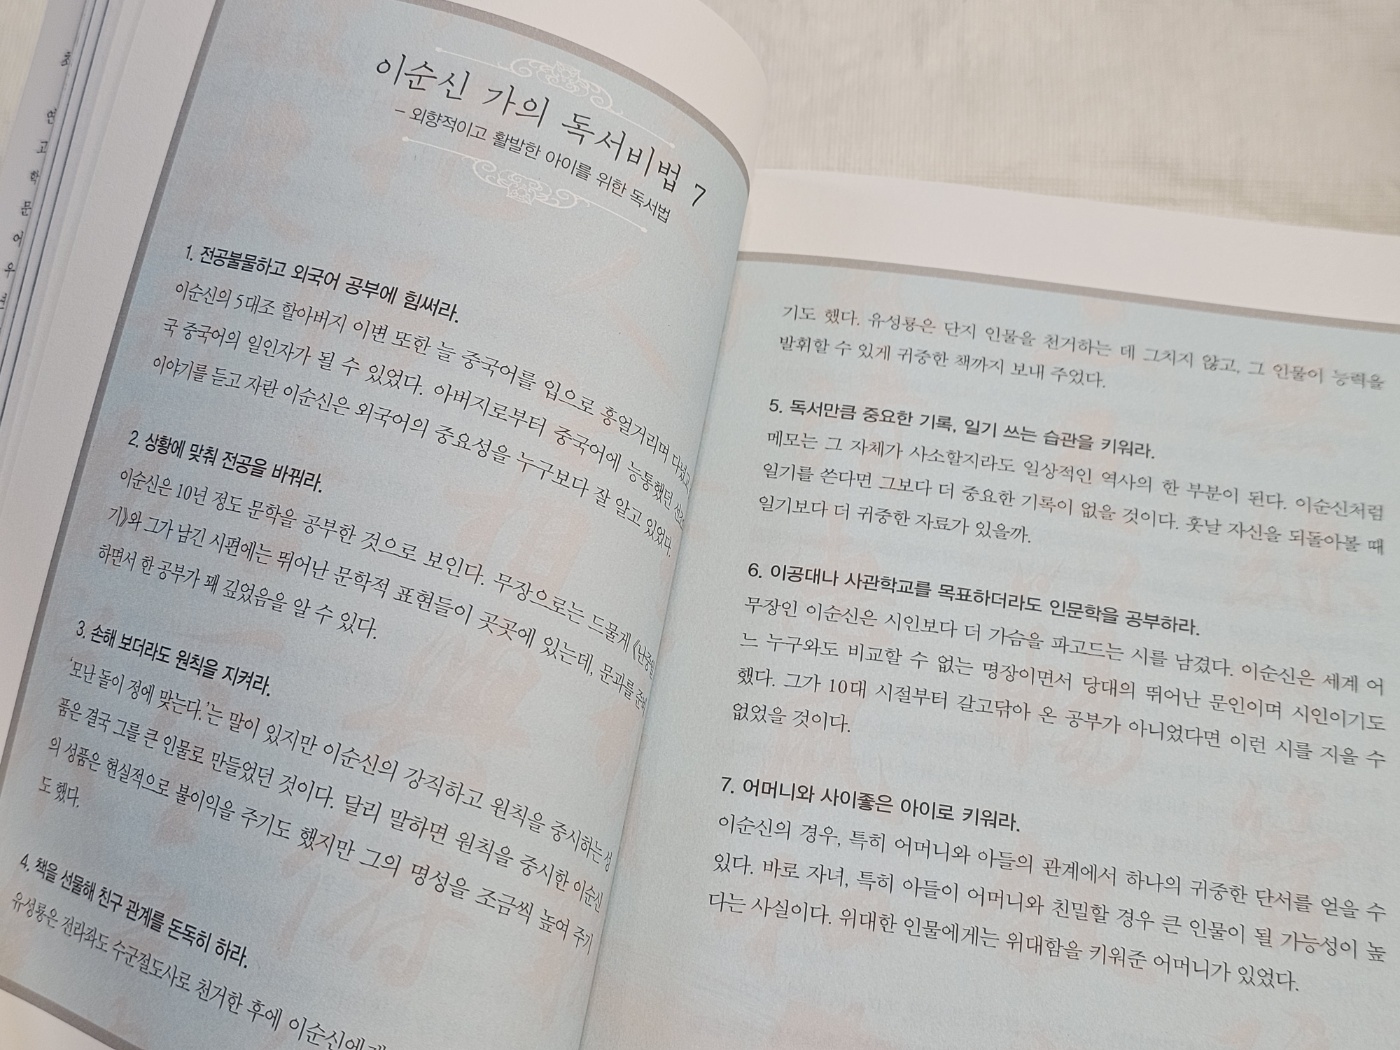 이순신 가의 독서비법 7
- 외향적이고 활발한 아이를 위한 독서법
1. 전공불물하고 외국어 공부에 힘써라.
이순신의 5대조 할아버지 이변 또한 늘 중국어를 입으로 흥얼거리며 다녔고
국 중국어의 일인자가 될 수 있었다. 아버지로부터 중국어에 능통했던
이야기를 듣고 자란 이순신은 외국어의 중요성을 누구보다 잘 알고 있었다.
2. 상황에 맞춰 전공을 바꿔라.
이순신은 10년 정도 문학을 공부한 것으로 보인다. 무장으로는 드물게 《난중일
기》와 그가 남긴 시편에는 뛰어난 문학적 표현들이 곳곳에 있는데, 문과를 준비
하면서 한 공부가 꽤 깊었음을 알 수 있다.
3. 손해 보더라도 원칙을 지켜라.
'모난 돌이 정에 맞는다.'는 말이 있지만 이순신의 강직하고 원칙을 중시하는 성
품은 결국 그를 큰 인물로 만들었던 것이다. 달리 말하면 원칙을 중시한 이순신
의 성품은 현실적으로 불이익을 주기도 했지만 그의 명성을 조금씩 높여 주기
도 했다.
4. 책을 선물해 친구 관계를 돈독히 하라.
유성룡은 전라좌도 수군절도사로 천거한 후에 이순신에게
기도 했다. 유성룡은 단지 인물을 천거하는 데 그치지 않고, 그 인물이 능력을
발휘할 수 있게 귀중한 책까지 보내 주었다.
5. 독서만큼 중요한 기록, 일기 쓰는 습관을 키워라.
메모는 그 자체가 사소할지라도 일상적인 역사의 한 부분이 된다. 이순신처럼
일기를 쓴다면 그보다 더 중요한 기록이 없을 것이다. 훗날 자신을 되돌아볼 때
일기보다 더 귀중한 자료가 있을까.
6. 이공대나 사관학교를 목표하더라도 인문학을 공부하라.
무장인 이순신은 시인보다 더 가슴을 파고드는 시를 남겼다. 이순신은 세계 어
느 누구와도 비교할 수 없는 명장이면서 당대의 뛰어난 문인이며 시인이기도
했다. 그가 10대 시절부터 갈고닦아 온 공부가 아니었다면 이런 시를 지을 수
없었을 것이다.
7. 어머니와 사이좋은 아이로 키워라.
이순신의 경우, 특히 어머니와 아들의 관계에서 하나의 귀중한 단서를 얻을 수
있다. 바로 자녀, 특히 아들이 어머니와 친밀할 경우 큰 인물이 될 가능성이 높
다는 사실이다. 위대한 인물에게는 위대함을 키워준 어머니가 있었다.